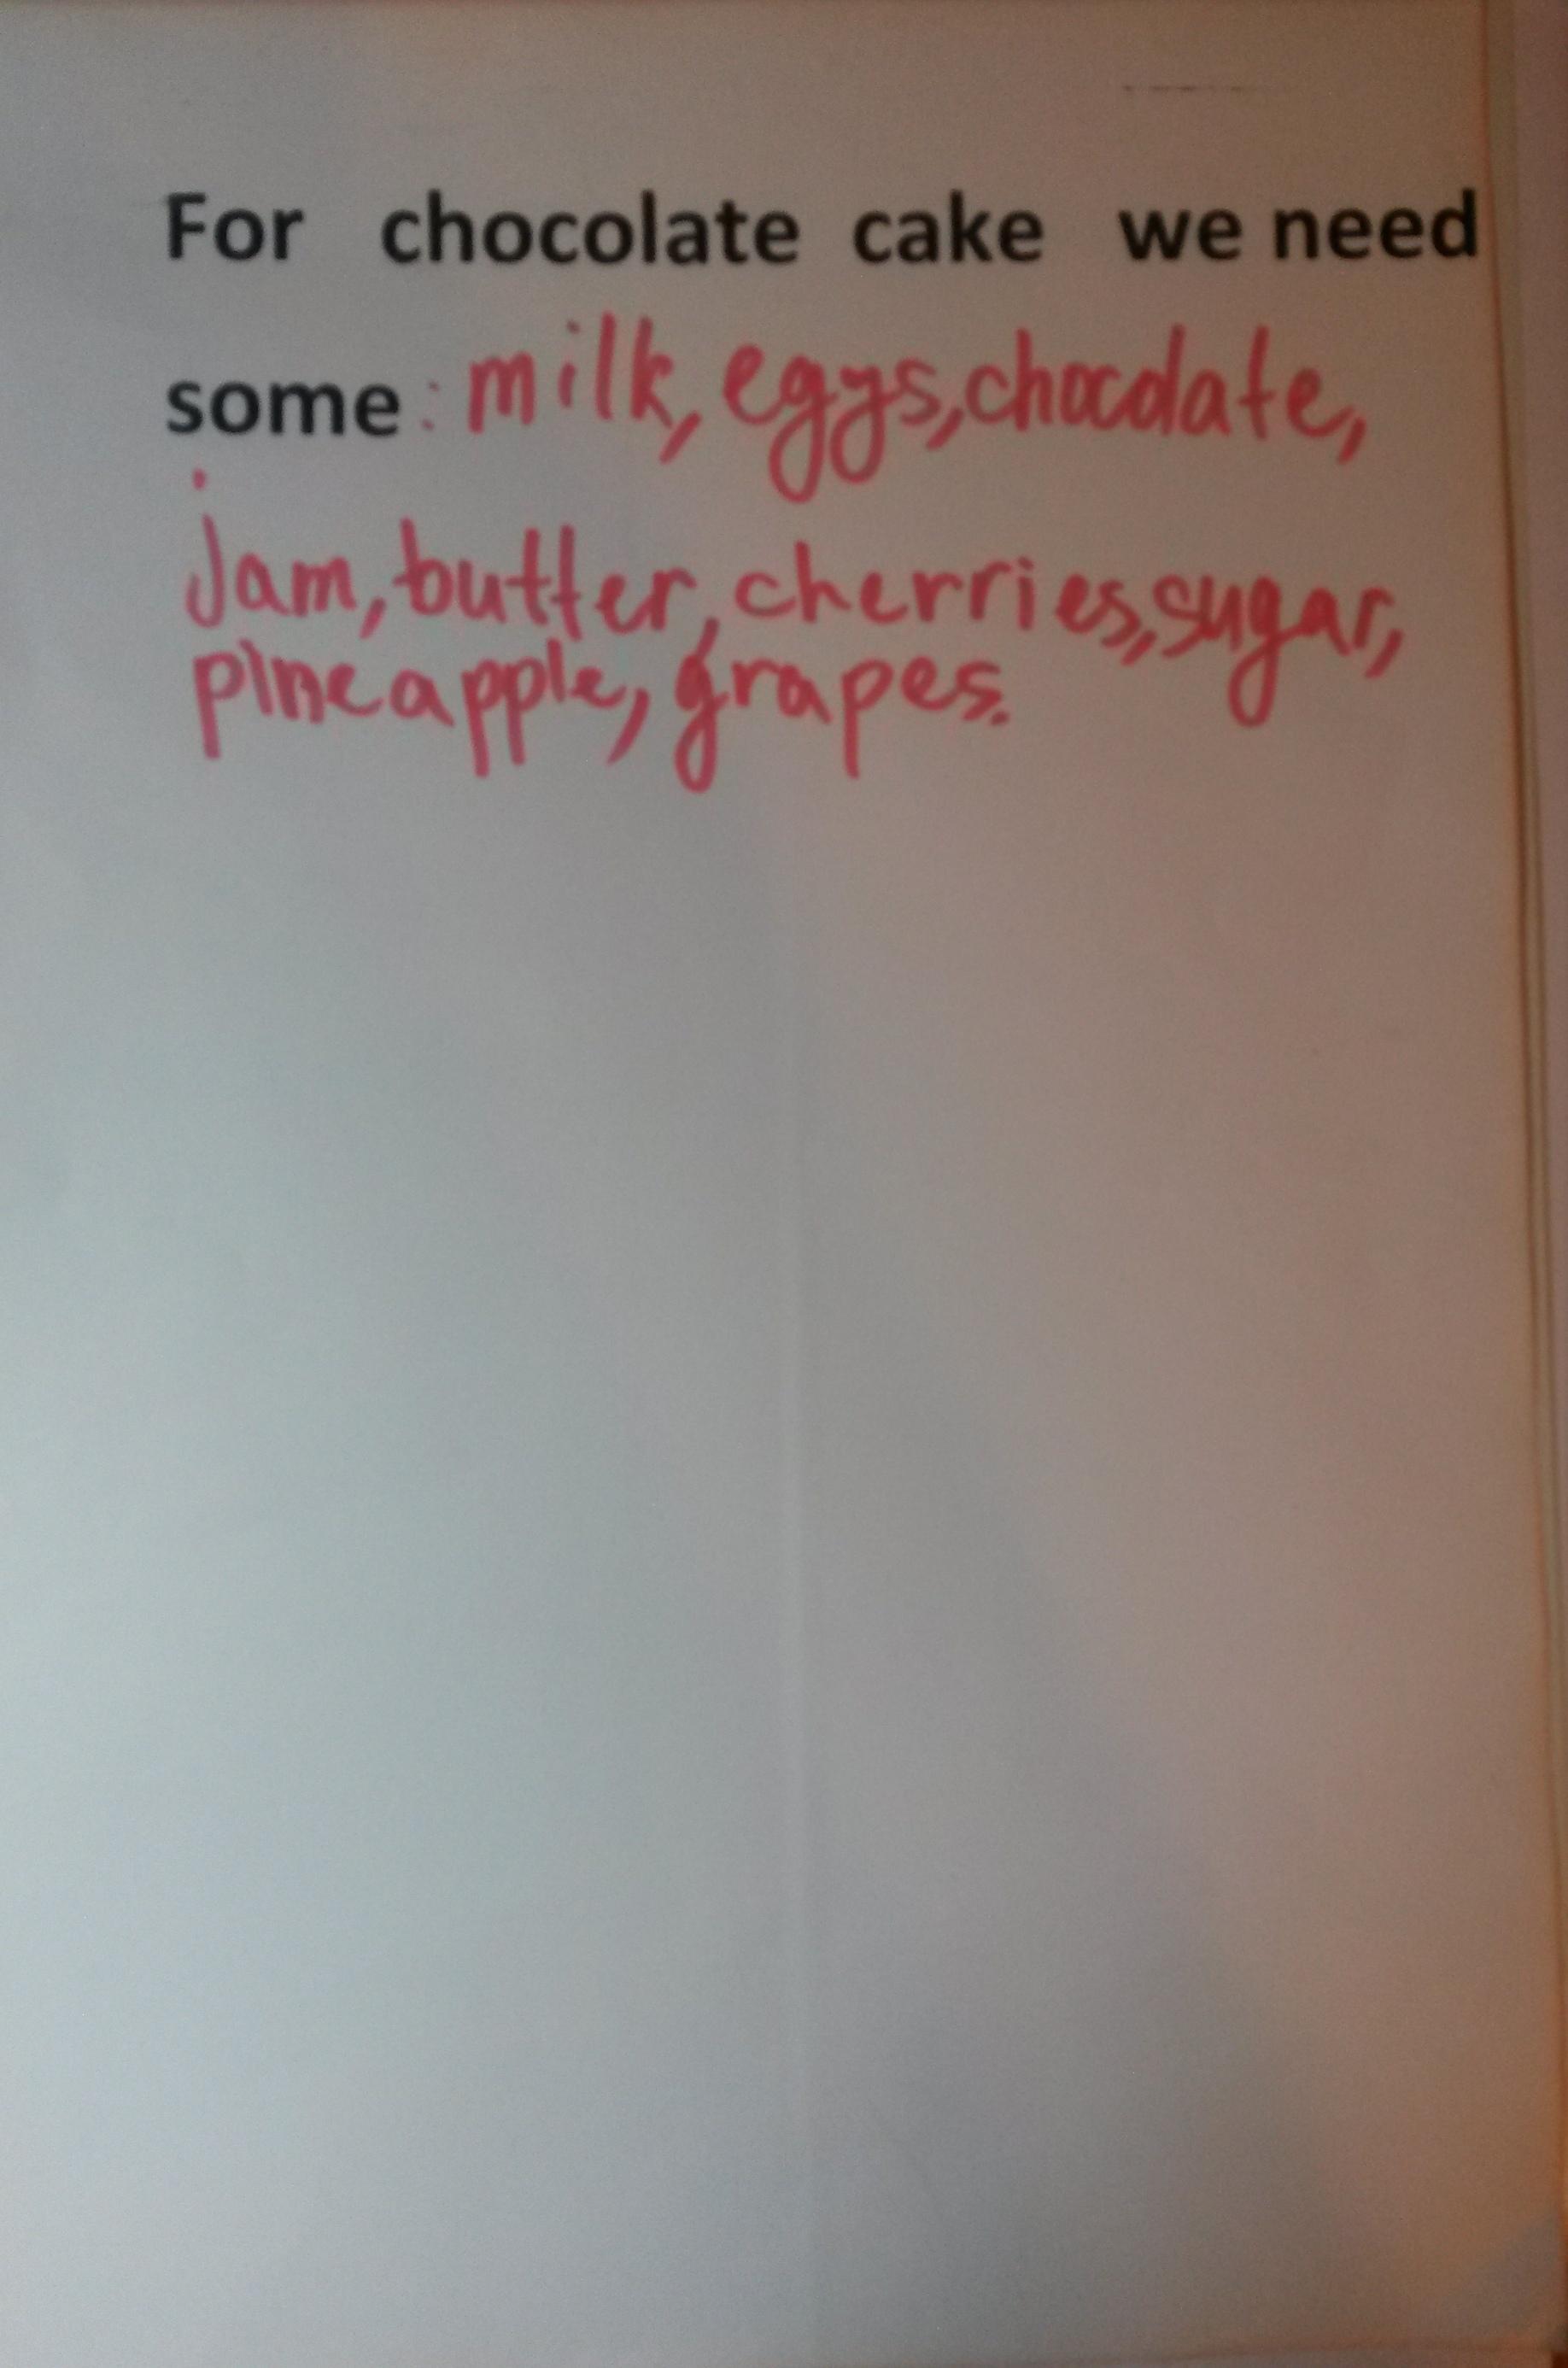 For chocolate cake we need
some: milk, eggs, chocolate,
jam, butter, cherries, sugar,
pineapple, grapes.